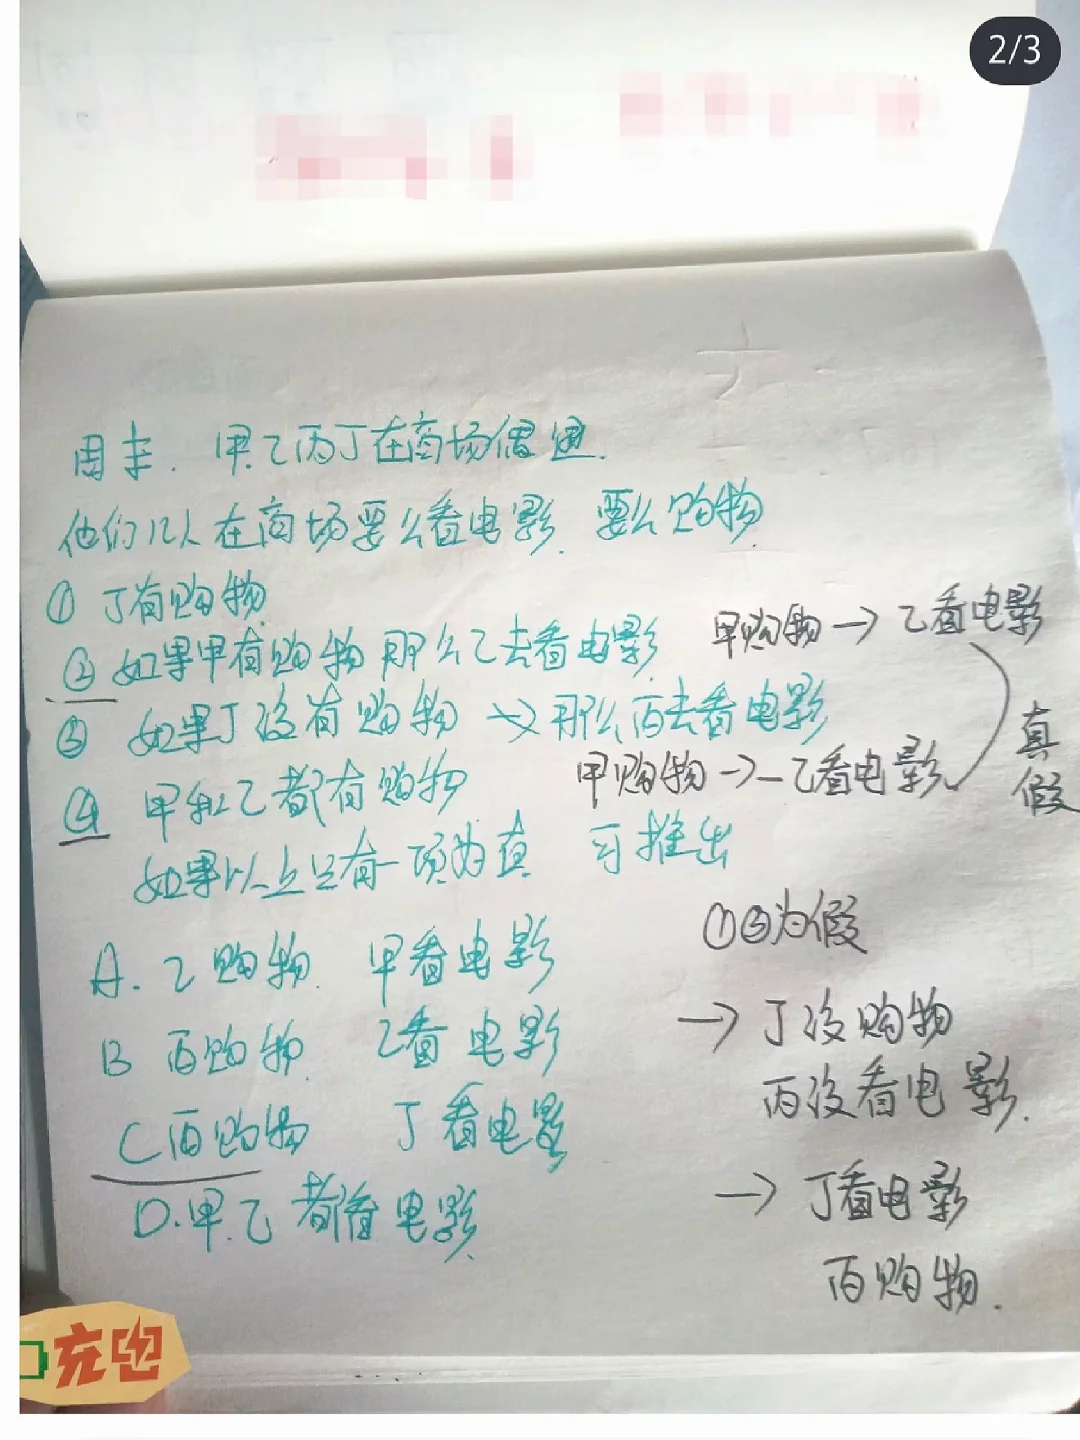 2/3
周末. 甲乙丙丁在商场偶遇.
他们几人在商场要么看电影. 要么购物
① 丁有购物
② 如果甲有购物 那么乙去看电影
甲购物→乙看电影
③ 如果丁没有购物 → 那么丙去看电影
④ 甲和乙都有购物
甲购物→一乙看电影
真
假
如果以上只有一项为真 可推出
①③为假
A. 乙购物. 甲看电影
B 丙购物. 乙看电影
→丁没购物
丙没看电影.
C 丙购物 丁看电影
D.甲.乙 都看电影.
→丁看电影
丙购物.
充电